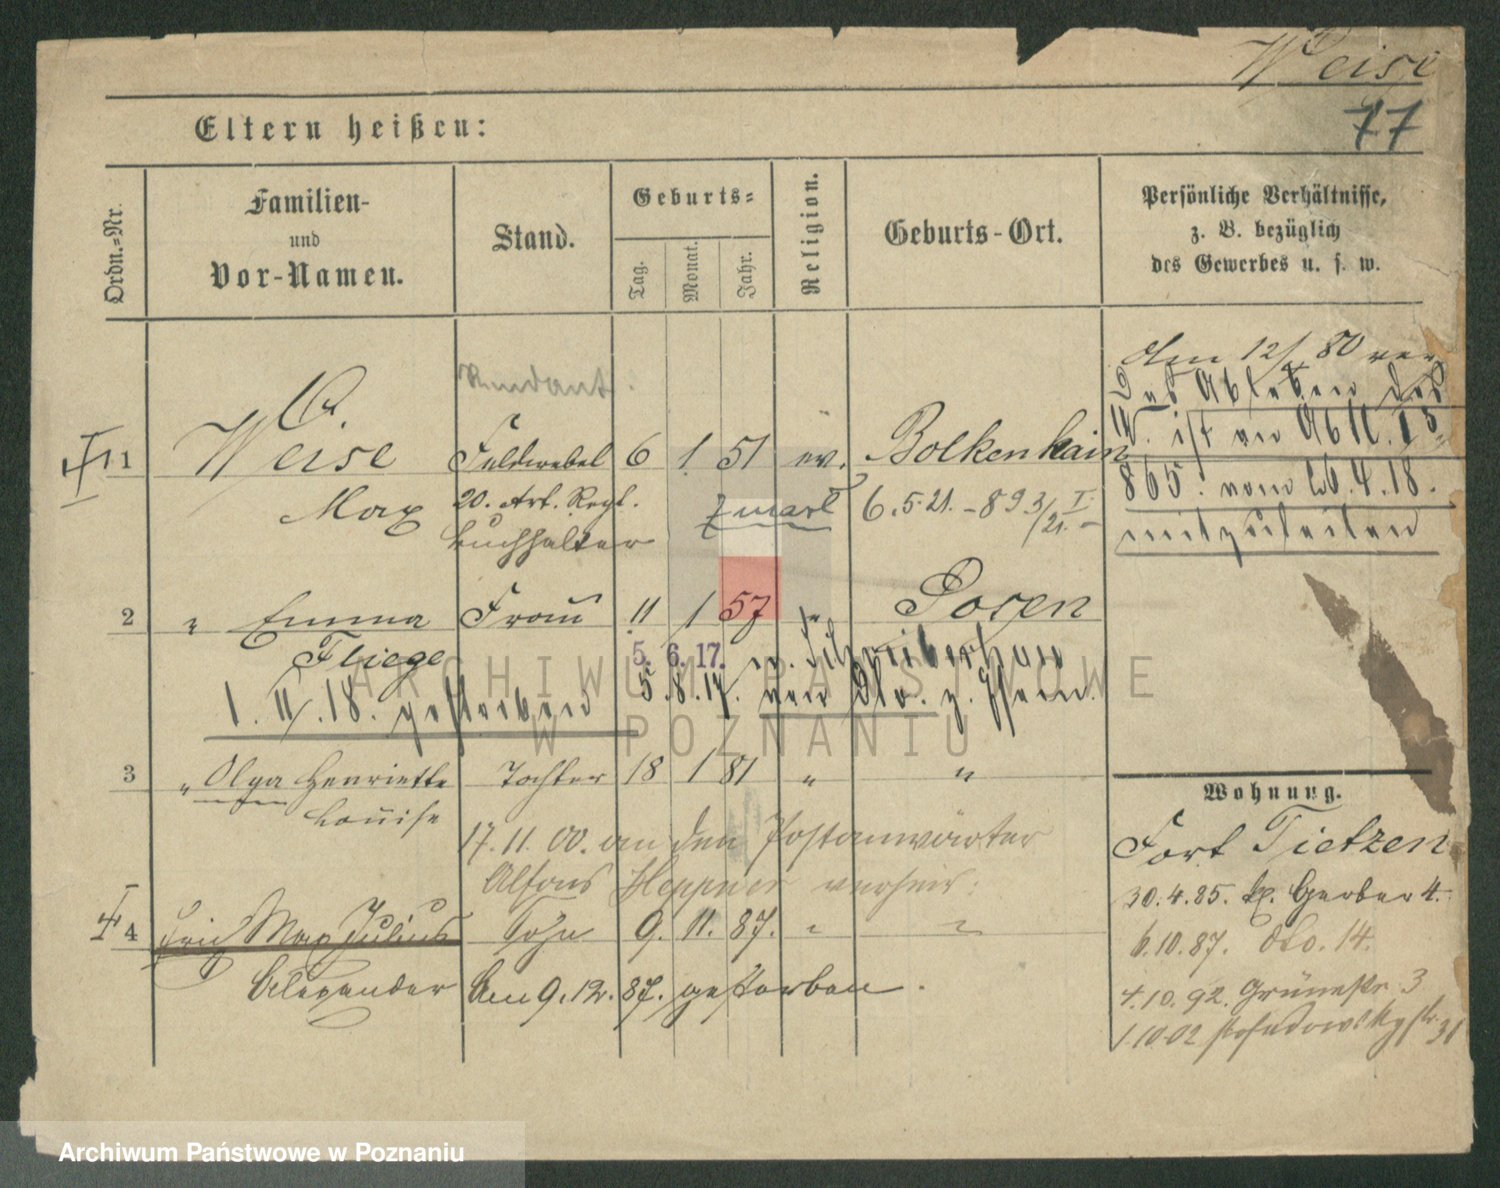 Weise
77
Eltern heißen:
Ordn.-Nr.
Familien-
und
Vor-Namen.
Stand.
Geburts-
Tag.
Monat.
Jahr.
Religion.
Geburts-Ort.
Persönliche Verhältnisse,
z. B. bezüglich
des Gewerbes u. s. w.
Rendant.
1 Weise Feldwebel 6 1 51 ev. Bolkenhain
Max 20. Art. Regt. 6.5.21. - 893/21. I. -
Buchhalter
Den 12/1 80 ver.
Das Ableben des
W. ist an Abtl.
865. vom 26.4.18.
mitzuteilen
2 " Emma Frau 11 1 57 " Posen
Fliege 5. 6. 17. n. Schreiberhau
1. 11. 18. gestorben 5.8.17. von Dto. z.
3 " Olga Henriette Tochter 18 1 81 " "
Louise
17.11.00. an den Postanwärter
Alfons Heppner verheir:
4 Max Julius Sohn 9. 11. 87. " "
Alexander Am 9.12.87. gestorben.
Wohnung.
Fort Tietzen
30.4.85. Gerber 4.
6.10.87. dto. 14.
4.10.92. Grünestr. 3
1.10.02 31
ARCHIWUM PAŃSTWOWE
W POZNANIU
Archiwum Państwowe w Poznaniu